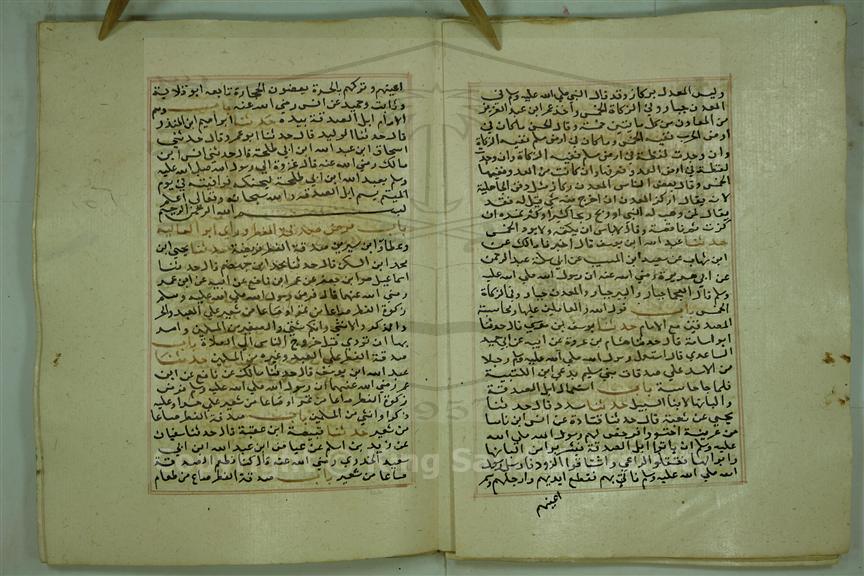 وليس المعدن بركاز وقد قال النبي صلى الله عليه وسلم في
المعدن جبار وفي الركاز الخمس واخذ عمر ابن عبد العزيز
من المعادن من كل مايتين خمسة وقال الحسن ماكان في
ارض الحرب ففيه الخمس وماكان في ارض سلم ففيه الزكاة
وان وجدت لقطة في ارض العدو فعرفها وان كانت من العدو ففيها
الخمس وقال بعض الناس المعدن ركاز مثل دفن الجاهلية
لانه يقال اركز المعدن اذا اخرج منه شي قيل له فقد
يقال لمن وهب له الشي او ربح ربحا كثيرا او كثر ثمره
اركزت ثم ناقضه وقال لاباس ان يكتمه ولا يودي الخمس
حدثنا عبد الله ابن يوسف قال اخبرنا مالك عن
ابن شهاب عن سعيد ابن المسيب عن ابي سلمة عبد الرحمن
عن ابي هريرة رضي الله عنه ان رسول الله صلى الله عليه
وسلم قال العجما جبار والبير جبار والمعدن جبار وفي الركاز
الخمس باب قول الله والعاملين عليها ومحاسبة
المصدقين مع الامام حدثنا يوسف بن موسى قال حدثنا
ابو اسامة قال حدثنا هشام بن عروة عن ابيه عن ابي حميد
الساعدي قال استعمل رسول الله صلى الله عليه وسلم رجلا
من الاسد على صدقات بني سليم يدعى ابن اللتبية
فلما جا حاسبه باب استعمال ابل الصدقة
والبانها لابنا السبيل حدثنا مسدد قال حدثنا
يحيى عن شعبة قال حدثنا قتادة عن انس ان ناسا
من عرينة اجتووا فرخص لهم رسول الله صلى الله
عليه وسلم ان ياتوا ابل الصدقة فيشربوا من البانها
وابوالها فقتلوا الراعي واستاقوا الذود فارسل رسول
الله صلى الله عليه وسلم فاتي بهم فقطع ايديهم وارجلهم وسمر
اعينهم
اعينهم وتركهم بالحرة يعضون الحجارة تابعه ابو قلابة
وثابت وحميد عن انس رضي الله عنه باب وسم
الامام ابل الصدقة بيده حدثنا ابراهيم ابن المنذر
قال حدثنا الوليد قال حدثنا ابو عمرو قال حدثني
اسحاق ابن عبد الله ابن ابي طلحة قال حدثني انس ابن
مالك رضي الله عنه قال غدوت الى رسول الله صلى الله عليه
وسلم بعبد الله ابن ابي طلحة ليحنكه فوافيته في يده
الميسم يسم ابل الصدقة والله سبحانه وتعالى اعلم
بسم الله الرحمن الرحيم
باب فرض صدقة الفطر وراى ابو العالية
وعطا وابن سيرين صدقة الفطر فريضة حدثنا يحيى ابن
محمد ابن السكن قال حدثنا محمد ابن جهضم قال حدثنا
اسماعيل هو ابن جعفر عن عمر ابن نافع عن ابيه عن ابن عمر
رضي الله عنهما قال فرض رسول الله صلى الله عليه وسلم
زكوة الفطر صاعا من تمر او صاعا من شعير على العبد والحر
والذكر والانثى والصغير والكبير من المسلمين وامر
بها ان تودى قبل خروج الناس الى الصلاة باب
صدقة الفطر على العبد وغيره من المسلمين حدثنا
عبد الله ابن يوسف قال حدثنا مالك عن نافع عن ابن
عمر رضي الله عنهما ان رسول الله صلى الله عليه وسلم فرض
زكوة الفطر صاعا من تمر او صاعا من شعير على كل حر او عبد
ذكر او انثى من المسلمين باب صدقة الفطر صاعا
من شعير حدثنا قبيصة ابن عقبة قال حدثنا سفيان
عن زيد بن اسلم عن عياض ابن عبد الله عن ابي
سعيد الخدري رضي الله عنه قال كنا نطعم الصدقة
صاعا من شعير باب صدقة الفطر صاع من طعام